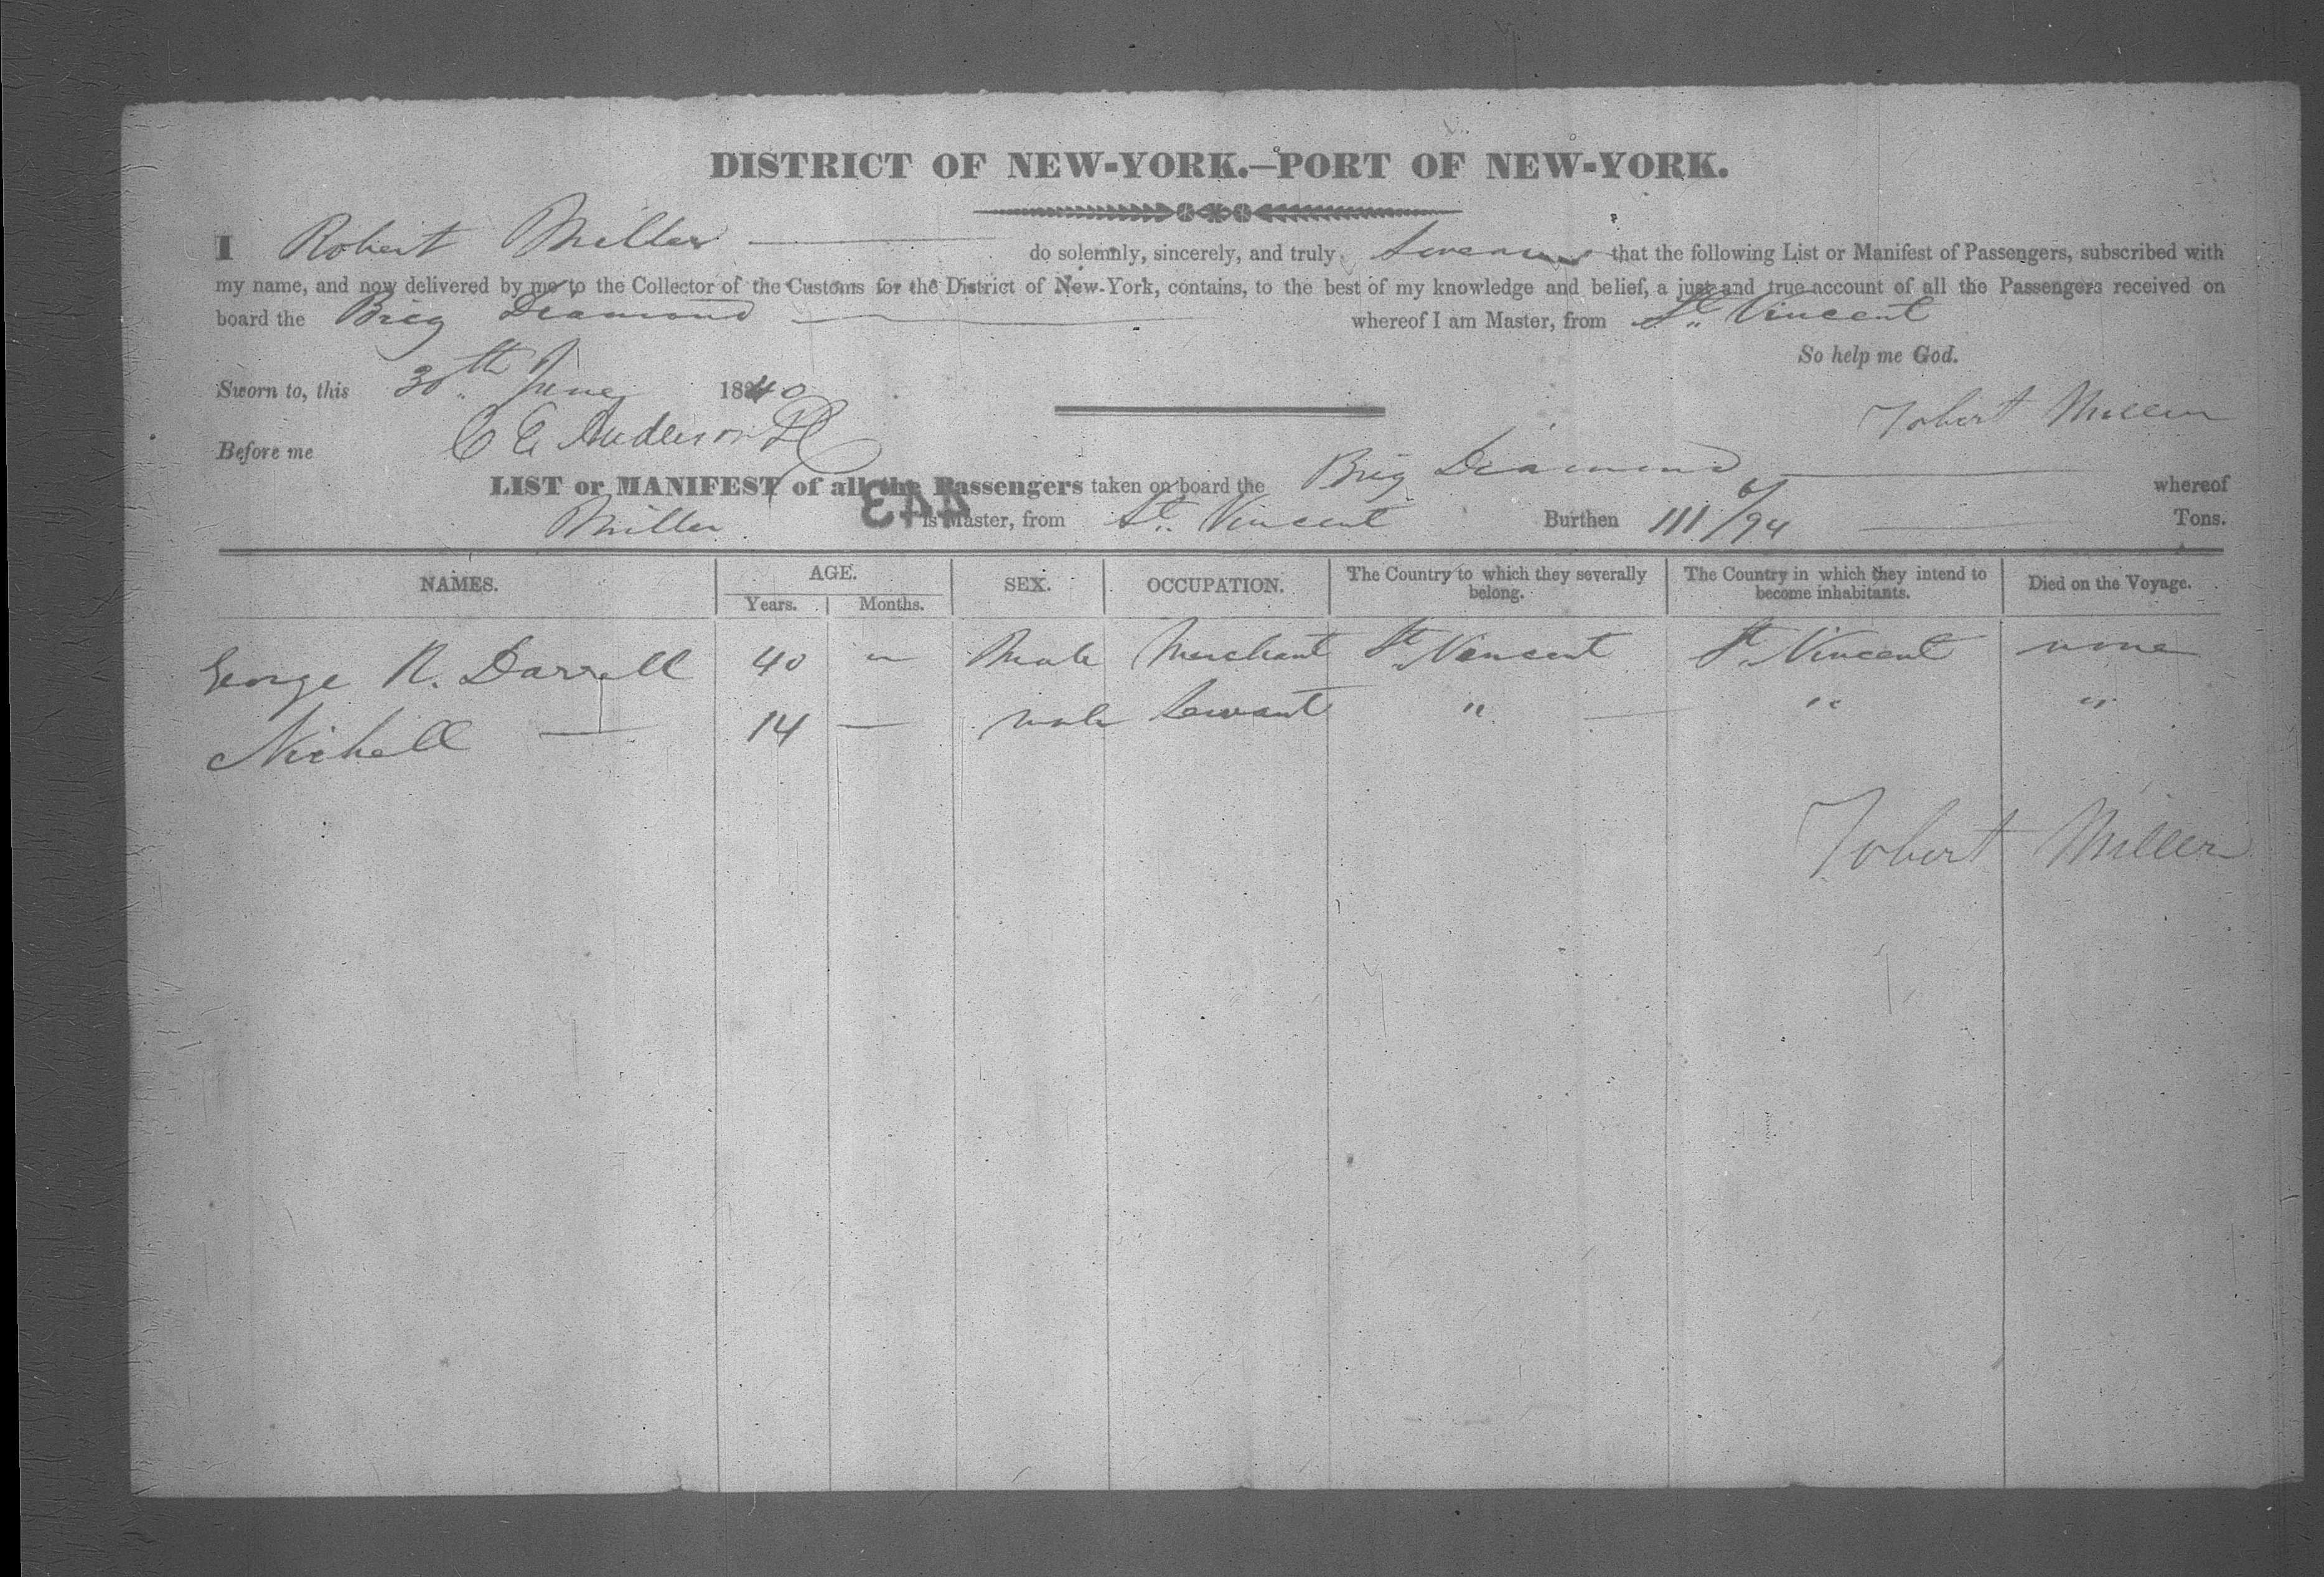 DISTRICT OF NEW-YORK.—PORT OF NEW-YORK.
I Robert Miller — do solemnly, sincerely, and truly swear that the following List or Manifest of Passengers, subscribed with
my name, and now delivered by me to the Collector of the Customs for the District of New-York, contains, to the best of my knowledge and belief, a just and true account of all the Passengers received on
board the Brig Diamond — whereof I am Master, from St. Vincent
So help me God.
Sworn to, this 30th June 1840
Robert Miller
Before me C E Anderson
LIST or MANIFEST of all the Passengers taken on board the Brig Diamond — whereof
Miller is Master, from St. Vincent Burthen 111 6/94 — Tons.
443
NAMES. AGE. SEX. OCCUPATION. The Country to which they severally belong. The Country in which they intend to become inhabitants. Died on the Voyage.
Years. Months.
George R. Darrell 40 " Male Merchant St. Vincent St. Vincent none
Nichell — 14 — male Servant " — " "
Robert Miller